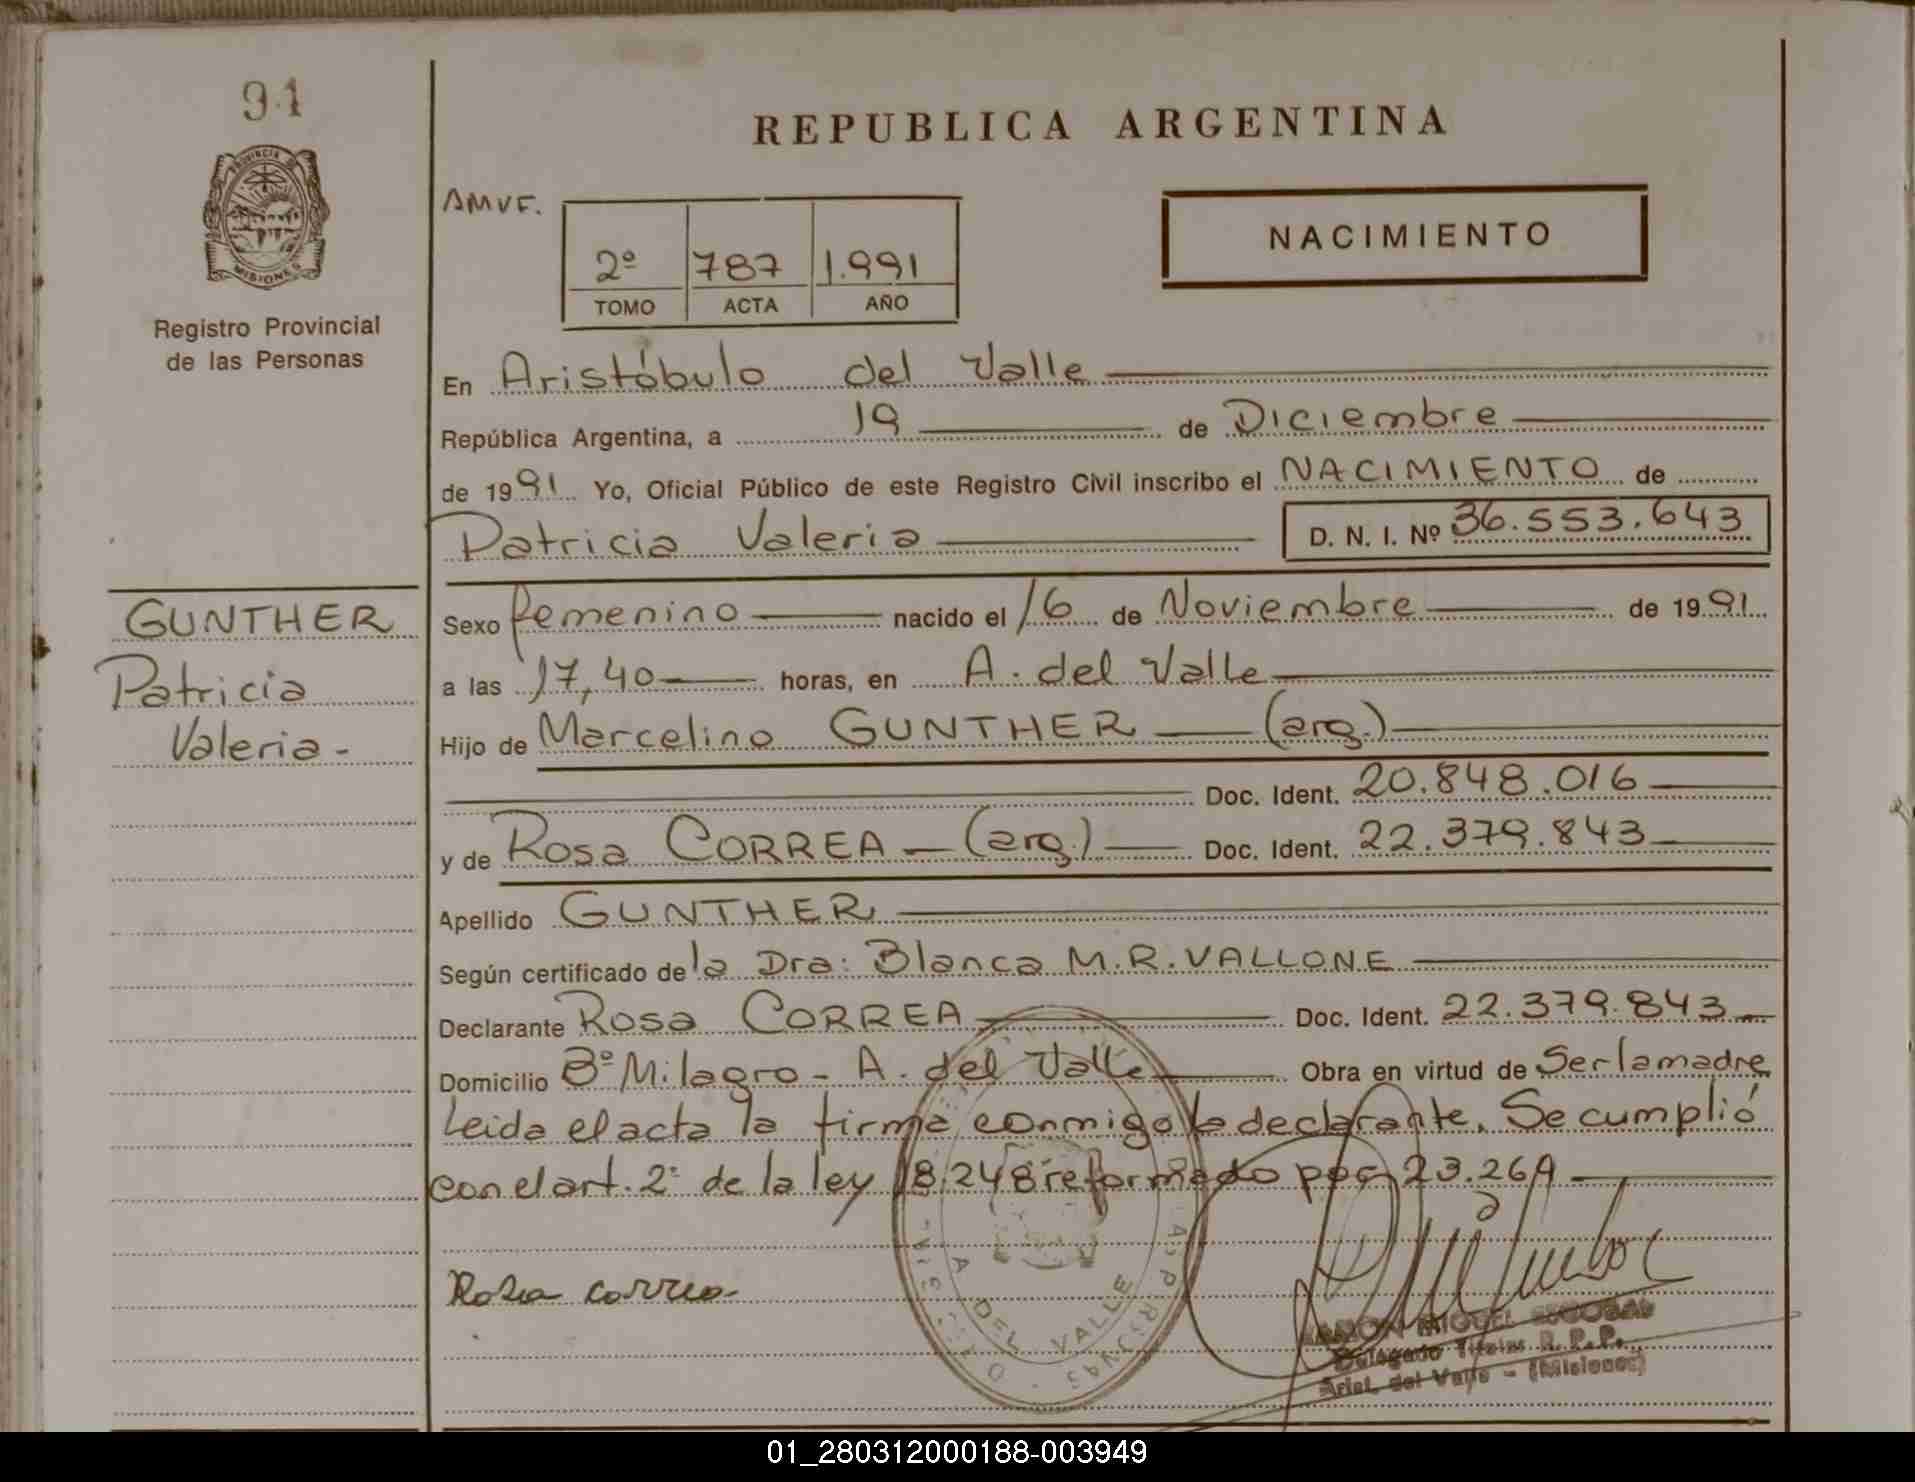 91
PROVINCIA DE
MISIONES
Registro Provincial
de las Personas
REPUBLICA ARGENTINA
AMVF.
2º 787 1.991
TOMO ACTA AÑO
NACIMIENTO
En Aristóbulo del Valle
República Argentina, a 19 de Diciembre
de 1991 Yo, Oficial Público de este Registro Civil inscribo el NACIMIENTO de
Patricia Valeria D. N. I. Nº 36.553.643
GUNTHER
Patricia
Valeria-
Sexo femenino nacido el 16 de Noviembre de 1991
a las 17,40 horas, en A. del Valle
Hijo de Marcelino GUNTHER (arg.)
Doc. Ident. 20.848.016
y de Rosa CORREA (arg.) Doc. Ident. 22.379.843
Apellido GUNTHER
Según certificado de la Dra: Blanca M.R.VALLONE
Declarante Rosa CORREA Doc. Ident. 22.379.843
Domicilio Bº Milagro - A. del Valle Obra en virtud de Ser la madre
Leida el acta la firma conmigo la declarante. Se cumplió
con el art. 2º de la ley 18.248 reformado por 23.264
Rosa correa
A DEL VALLE
RAMON MIGUEL ESCOBAR
Delegado Titular R. P. P.
Arist. del Valle - (Misiones)
01_280312000188-003949